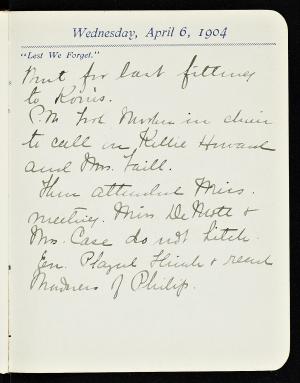 Wednesday, April 6, 1904
"Lest We Forget."
Went for last fitting
to Korn's.
P.M. Took Mother in
to call on Kellie Howard
and Mrs. Faill.
Then attended Miss.
meeting. Miss DeMott &
Mrs. Case do not hitch.
Eve. Played Flinch & read
Madness of Philip.